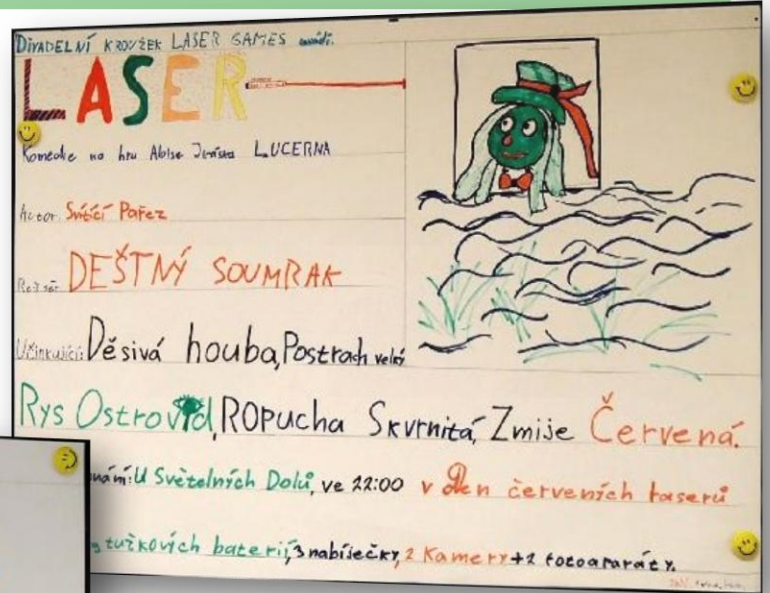 DIVADELNÍ KROUŽEK LASER GAMES uvádí:
LASER
Komedie na hru Aloise Jiráska LUCERNA
Autor: Svítící Pařez
Režisér: DEŠTNÝ SOUMRAK
Účinkující: Děsivá houba, Postrach velký
Rys Ostrovid, ROpucha Skvrnitá, Zmije Červená.
nání: U Světelných Dolů, ve 22:00 v Den červených laserů
9 tužkových baterií, 3 nabíječky, 2 Kamery + 2 fotoaparáty.